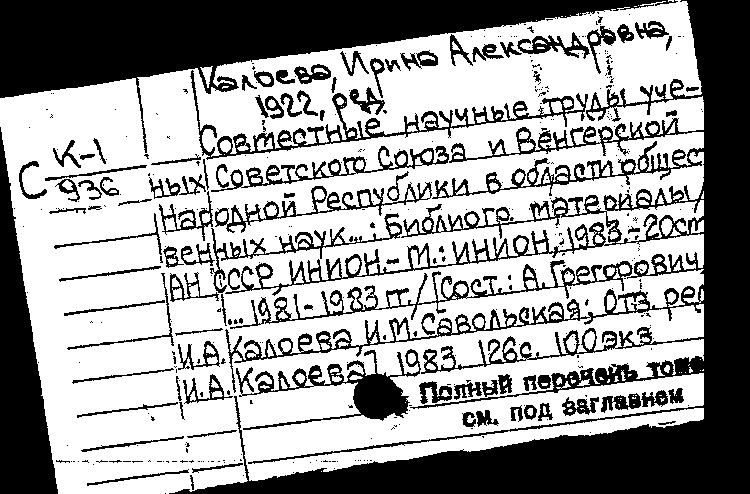 Калоева, Ирина Александровна,
1922, ред.
С К-1
936
Совместные научные труды уче-
ных Советского Союза и Венгерской
Народной Республики в области общес
венных наук...: Библиогр. материалы/
АН СССР, ИНИОН.- М.: ИНИОН, 1983.-20см
... 1981-1983 гг./[Сост.: А. Грегорович,
И.А. Калоева, И.М. Савольская; Отв. ред.
И.А. Калоева]. 1983. 126с. 100экз.
Полный перечень томо
см. под заглавием